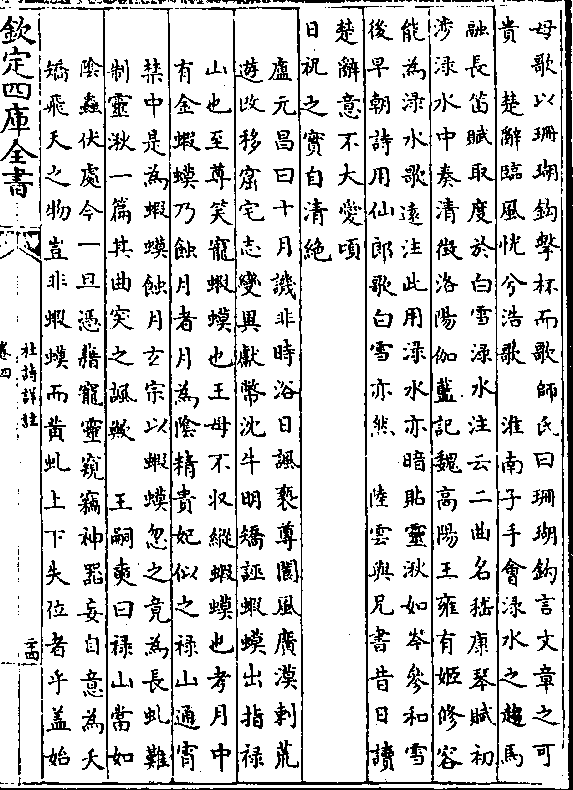 母歌以珊瑚鈎擊杯而歌師氏曰珊瑚鈎言文章之可
貴　楚辭臨風怳兮浩歌　淮南子手會渌水之趨馬
融長笛賦取度於白雪渌水注云二曲名嵇康琴賦初
渉渌水中奏清徴洛陽伽藍記魏髙陽王雍有姬修容
能為渌水歌遠注此用渌水亦暗貼靈湫如岑參和雪
後早朝詩用仙郎歌白雪亦然　陸雲與兄書昔日讀
楚辭意不大愛頃
日視之實自清絶
盧元昌曰十月譏非時浴日諷褻尊閬風廣漠刺荒
遊改移窟宅志變異獻幣沈牛明矯誣蝦蟆出指禄
山也至尊笑寵蝦蟆也王母不収縱蝦蟆也考月中
有金蝦蟆乃蝕月者月為陰精貴妃似之禄山通宵
禁中是為蝦蟆蝕月玄宗以蝦蟆忽之竟為長虬難
制靈湫一篇其曲突之諷歟　王嗣奭曰禄山當如
陰蟲伏處今一旦憑藉寵靈窺竊神器妄自意為夭
矯飛天之物豈非蝦蟆而黄虬上下失位者乎盖始
欽定四庫全書
杜詩詳註
卷四
二十四